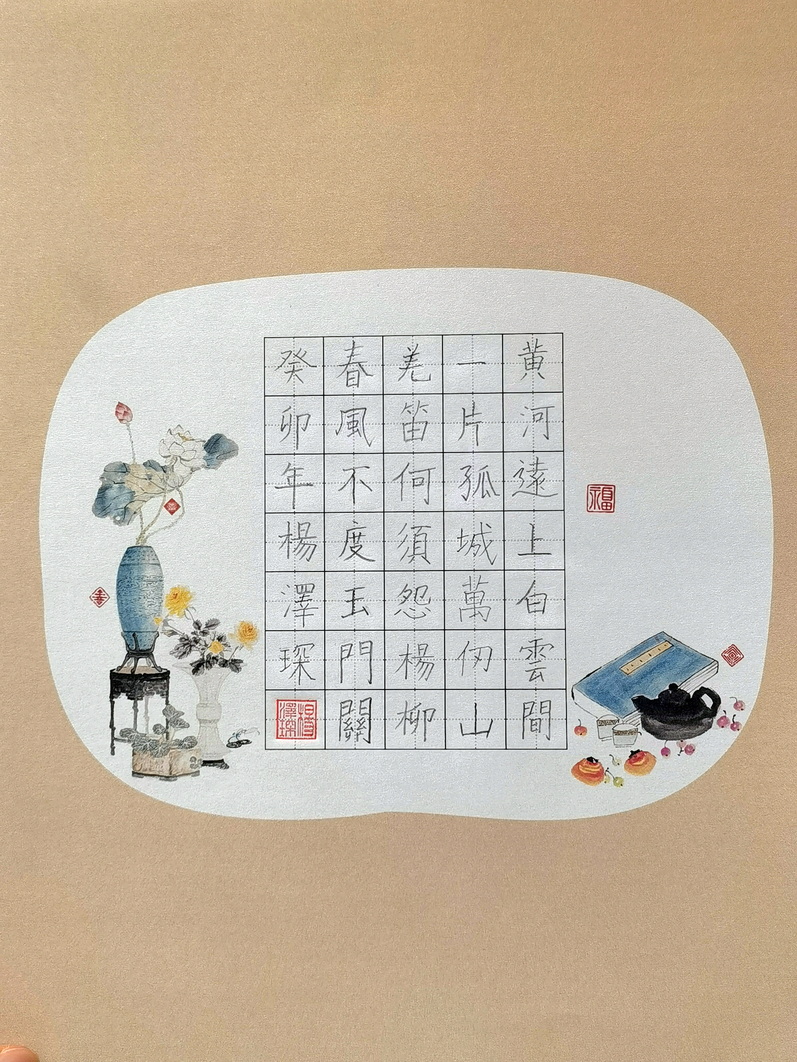 黄河遠上白雲間
一片孤城萬仞山
羌笛何須怨楊柳
春風不度玉門關
癸卯年楊澤琛